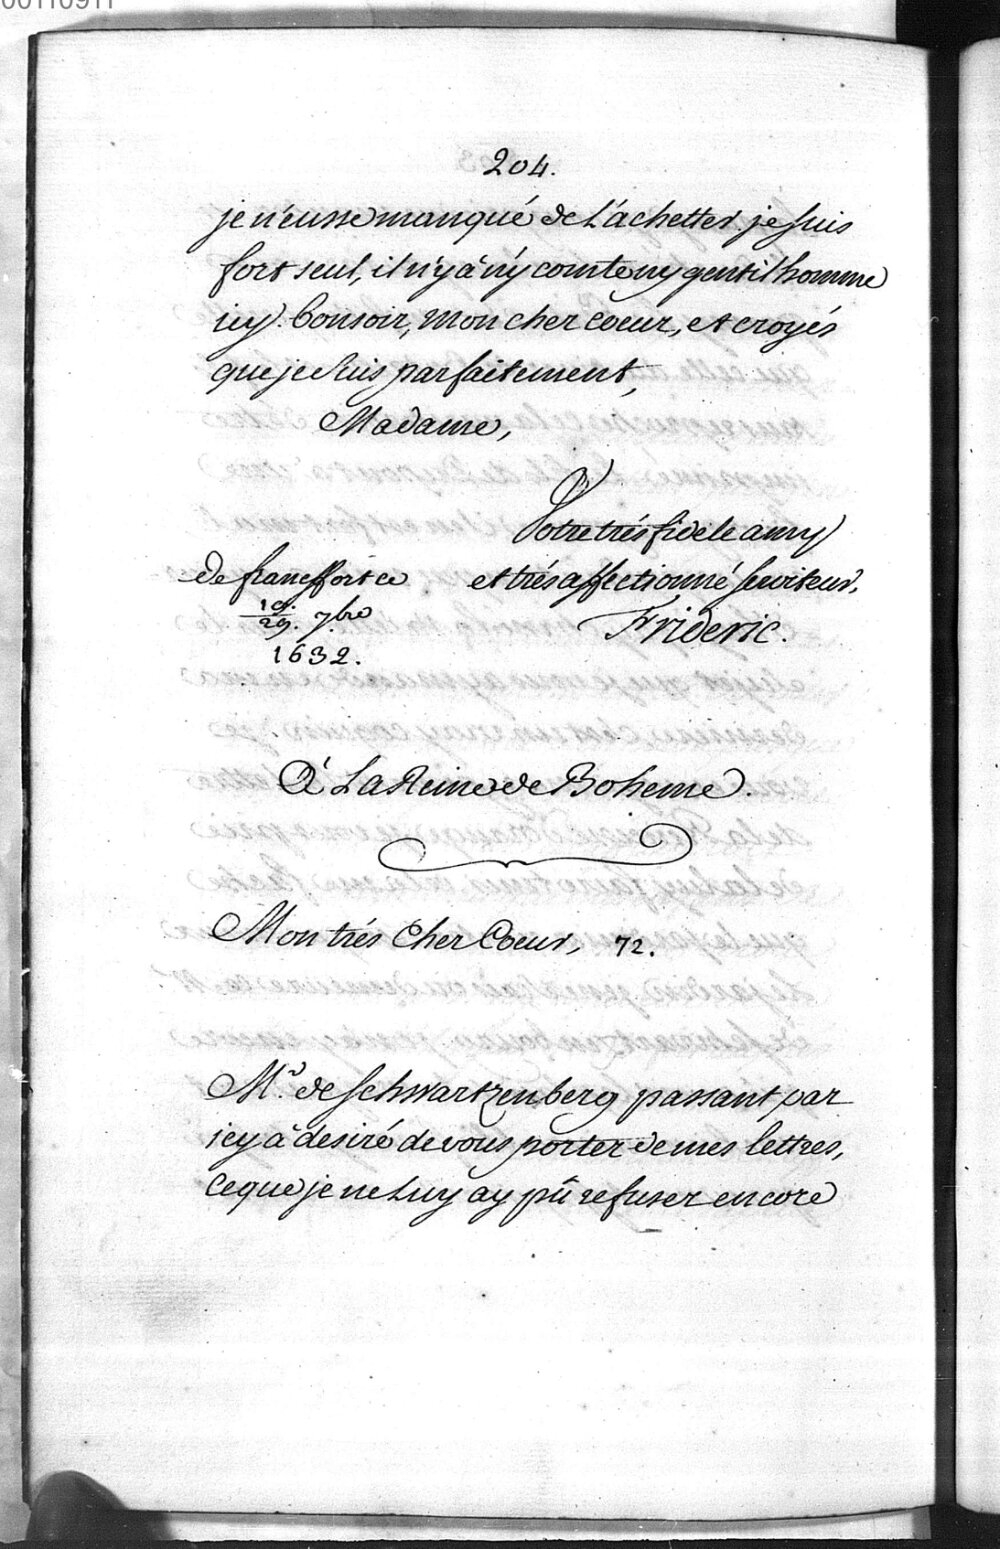 00110911
204.
je n'eusse manqué de L'achetter. je suis
fort seul, il n'y à ny comte ny gentilhomme
icy. bonsoir, mon cher coeur, et croyés
que je suis parfaitement,
Madame,
Votre trés fidele amy
et trés affectionné serviteur,
Frideric.
de francffort ce
19./29. 7bre
1632.
À La Reine de Boheme.
Mon trés Cher Coeur, 72.
Mr. de Schwartzenberg passant par
icy à desiré de vous porter de mes lettres,
ce que je ne Luy ay pû refuser encore